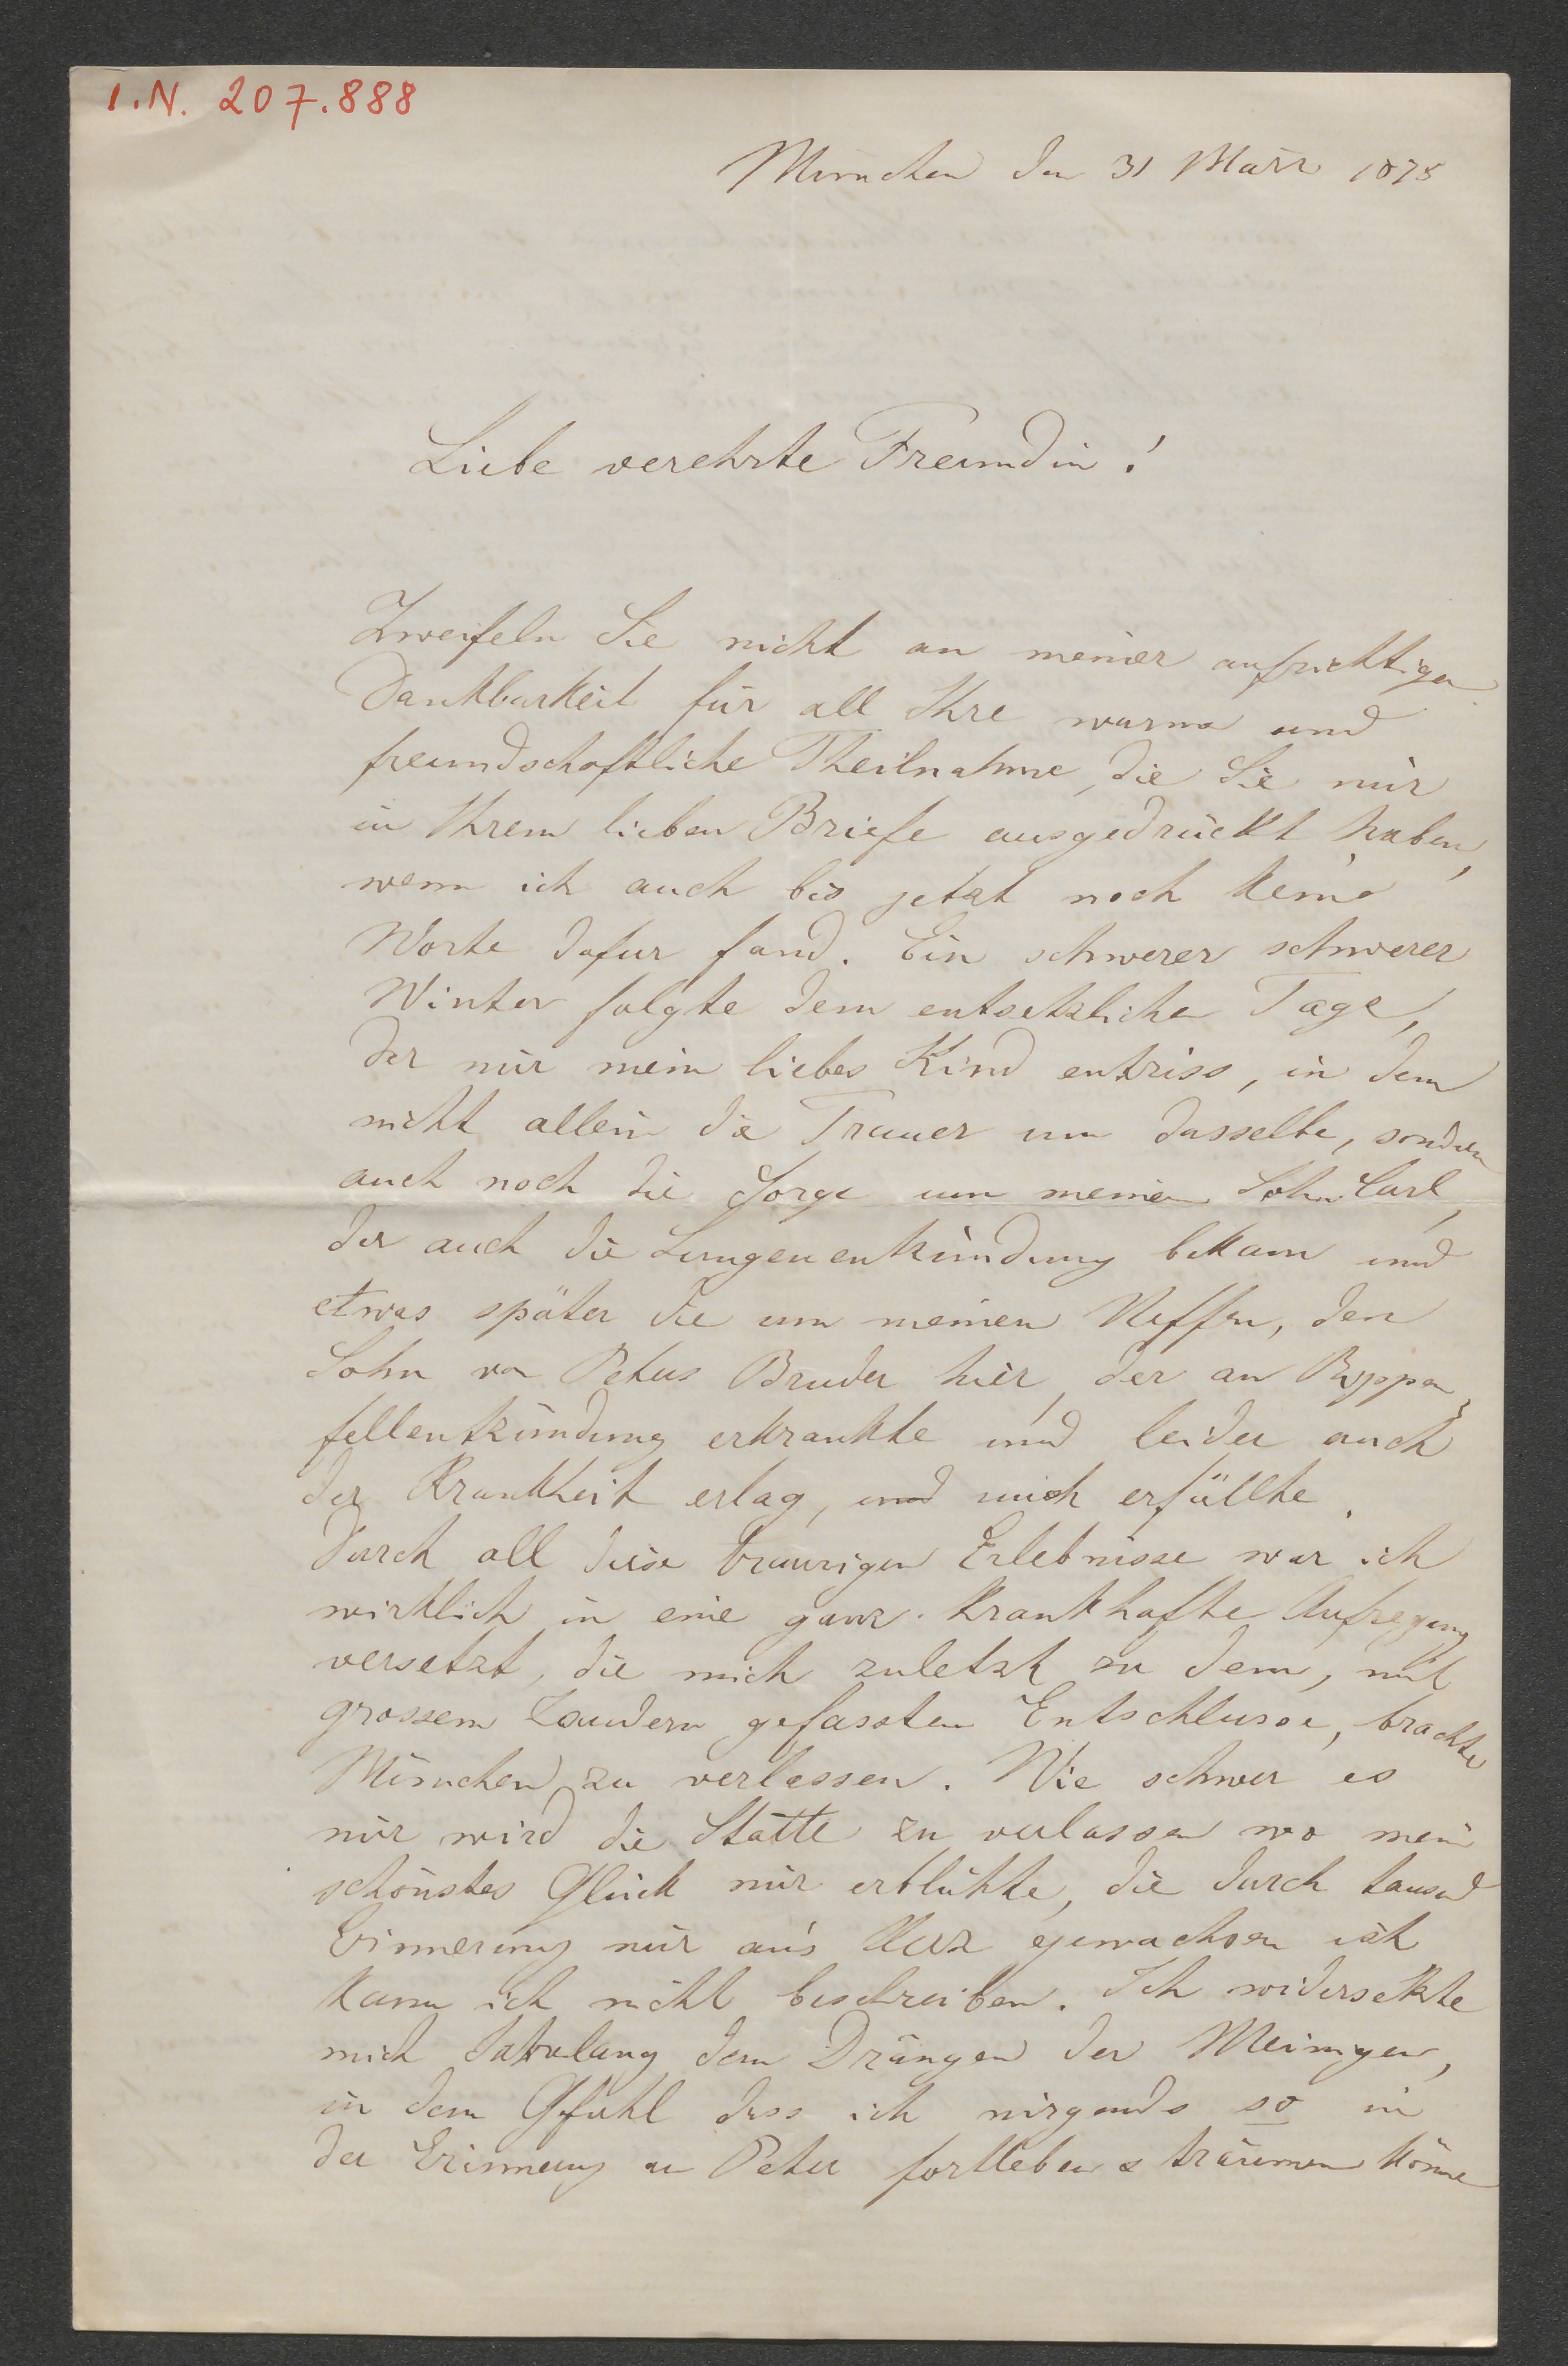 I.N. 207.888
München den 31 März 1878
Liebe verehrte Freundin!
Zweifeln Sie nicht an meiner aufrichtigen
Dankbarkeit für all Ihre warme und
freundschaftliche Theilnahme, die Sie mir
in Ihrem lieben Briefe ausgedrückt haben,
wenn ich auch bis jetzt noch keine
Worte dafur fand. Ein schwerer schwerer
Winter folgte dem entsetzlichen Tage,
der mir mein liebes Kind entriss, in dem
nicht allein die Trauer um dasselbe, sondern
auch noch die Sorge um meinen Sohn Carl,
der auch die Lungenentzündung bekam und
etwas später die um meinen Neffen, den
Sohn von Peters Bruder hier, der an Rippen
fellentzündung erkrankte und leider auch
der Krankheit erlag, und mich erfüllte.
Durch all diese traurigen Erlebnisse war ich
wirklich in eine ganz krankhafte Aufregung
versetzt, die mich zuletzt zu dem, mit
grossem Zaudern gefassten Entschlusse, brachte
München zu verlassen. Wie schwer es
mir wird die Stätte zu verlassen wo mein
schönstes Glück mir erblühte, die durch tausend
Erinnerung mir an's Herz gewachsen ist
kann ich nicht beschreiben. Ich widersetzte
mich Jahrelang dem Drängen der Meinigen,
in dem Gefühl dass ich nirgends so in
der Erinnerung an Peter fortleben & träumen könne